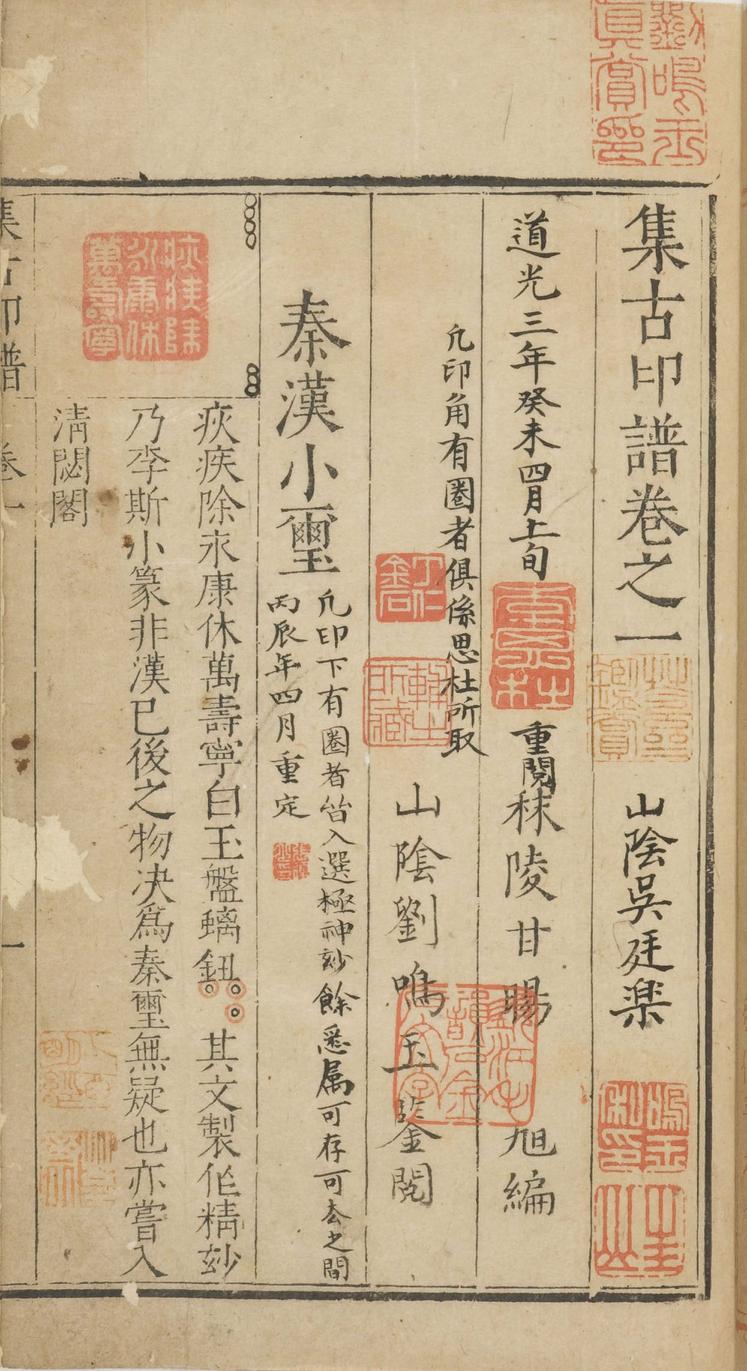 劉鳴玉真賞印
集古印譜卷之一
山陰吳廷
道光三年癸未四月上旬
重閱
秣陵甘暘旭編
凡印角有圈者俱係思杜所取
山陰劉鳴玉鑒閱
秦漢小璽
凡印下有圈者皆入選極神妙餘悉属可存可去之間
丙辰年四月重定
疢疾除永康休萬壽寧
疢疾除永康休萬壽寧白玉盤螭鈕 其文製作精妙
乃李斯小篆非漢已後之物决爲秦璽無疑也亦嘗入
清閟閣
集古印譜 卷一 一